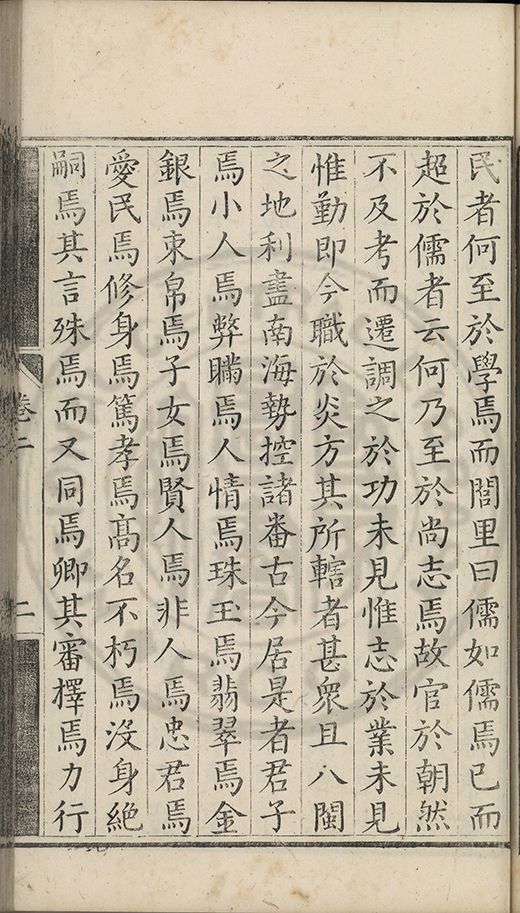 民者何至於學焉而閭里曰儒如儒焉已而
超於儒者云何乃至於尚志焉故官於朝然
不及考而遷調之於功未見惟志於業未見
惟勤即今職於炎方其所轄者甚衆且八閩
之地利盡南海勢控諸番古今居是者君子
焉小人焉弊瞞焉人情焉珠玉焉翡翠焉金
銀焉束帛焉子女焉賢人焉非人焉忠君焉
愛民焉修身焉篤孝焉高名不朽焉沒身絶
嗣焉其言殊焉而又同焉卿其審擇焉力行
卷二
二